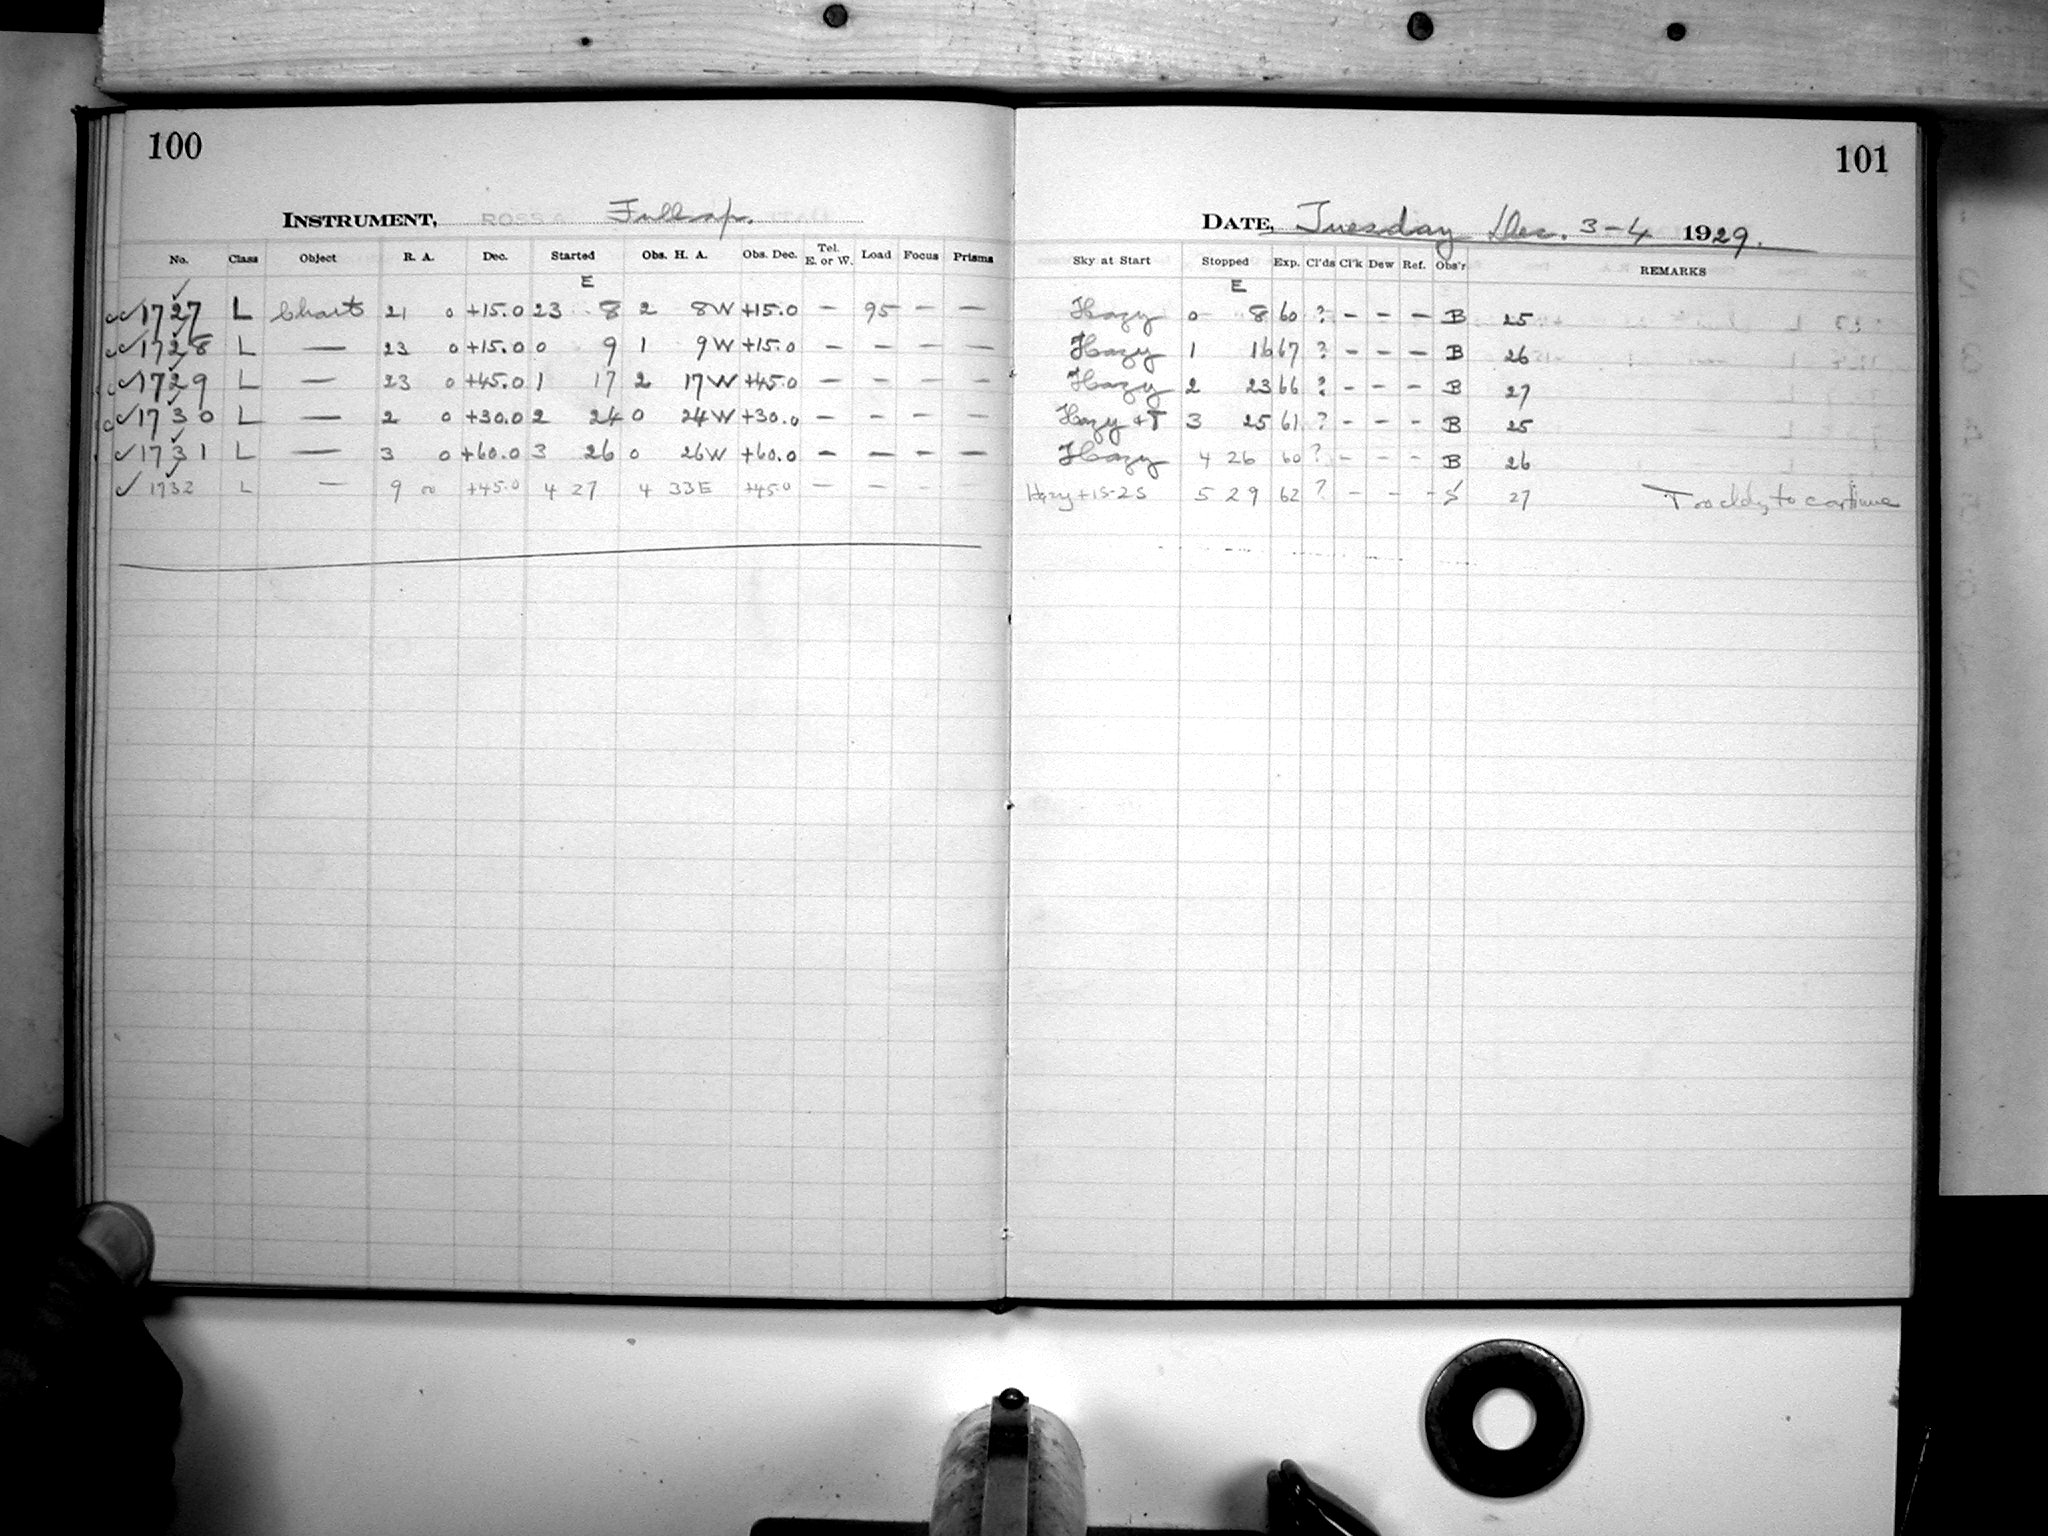 100
INSTRUMENT,
No. Class Object R. A. Dec. Started Obs. H. A. Obs. Dec. Tel. E. or W. Load Focus Prisms
E
1727 L Charts 21 0 +15.0 23 8 2 8W +15.0 — 95 — —
1728 L — 23 0 +15.0 0 9 1 9W +15.0 — — — —
1729 L — 23 0 +45.0 1 17 2 17W +45.0 — — — —
1730 L — 2 0 +30.0 2 24 0 24W +30.0 — — — —
1731 L — 3 0 +60.0 3 26 0 26W +60.0 — — — —
1732 L — 9 00 +45.0 4 27 4 33E +45.0 — — — —
101
DATE, Tuesday Dec. 3-4 1929.
Sky at Start Stopped Exp. Cl'ds Cl'k Dew Ref. Obs'r REMARKS
E
Hazy 0 8 60 ? — — — B 25
Hazy 1 16 67 ? — — — B 26
Hazy 2 23 66 ? — — — B 27
Hazy + T 3 25 61 ? — — — B 25
Hazy 4 26 60 ? — — — B 26
Hazy + 1S-2S 5 29 62 ? — — — S 27 Too cldy to continue